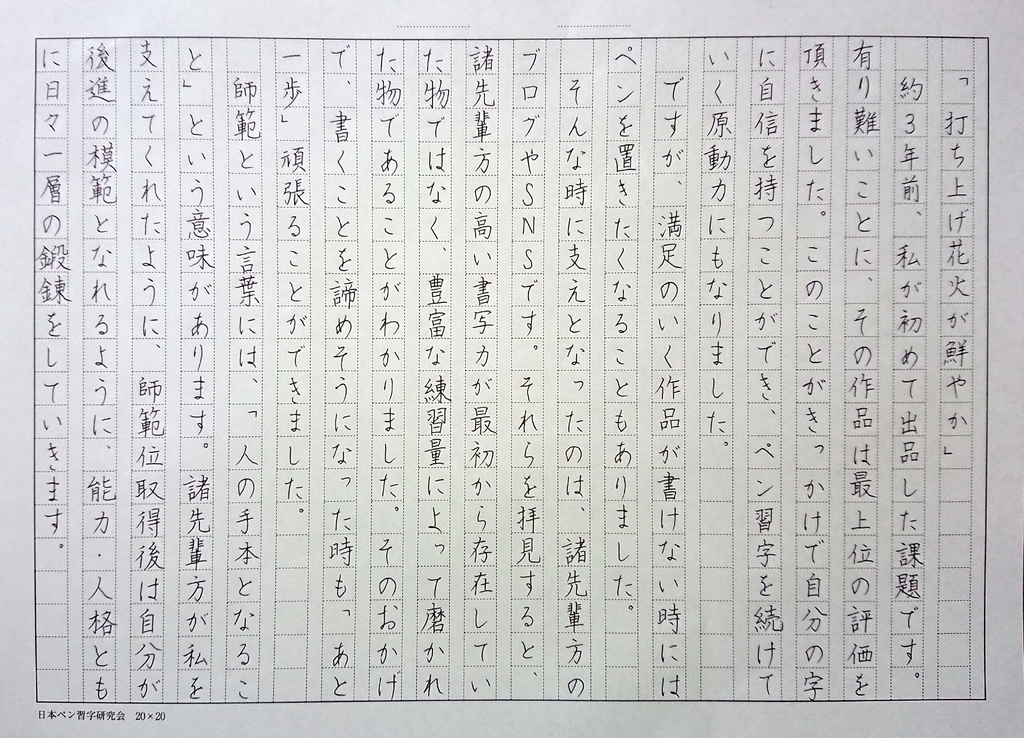 「打ち上げ花火が鮮やか」
約3年前、私が初めて出品した課題です。
有り難いことに、その作品は最上位の評価を
頂きました。このことがきっかけで自分の字
に自信を持つことができ、ペン習字を続けて
いく原動力にもなりました。
ですが、満足のいく作品が書けない時には
ペンを置きたくなることもありました。
そんな時に支えとなったのは、諸先輩方の
ブログやSNSです。それらを拝見すると、
諸先輩方の高い書写力が最初から存在してい
た物ではなく、豊富な練習量によって磨かれ
た物であることがわかりました。そのおかげ
で、書くことを諦めそうになった時も「あと
一歩」頑張ることができました。
師範という言葉には、「人の手本となるこ
と」という意味があります。諸先輩方が私を
支えてくれたように、師範位取得後は自分が
後進の模範となれるように、能力・人格とも
に日々一層の鍛錬をしていきます。
日本ペン習字研究会 20×20